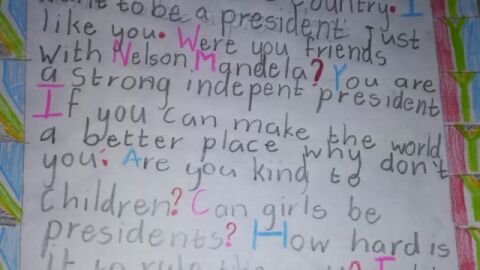 country. I
to be a president just
like you. Were you friends
with Nelson Mandela? You are
a strong indepent president
If you can make the world
a better place why don't
you. Are you kind to
children? Can girls be
presidents? How hard is
it to rule